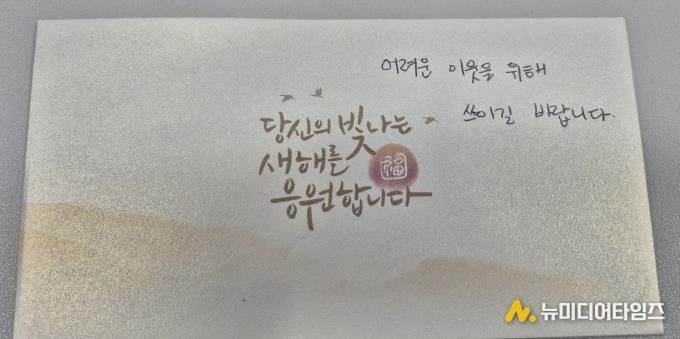 어려운 이웃을 위해
쓰이길 바랍니다.
당신의 빛나는
새해를
福
응원합니다
뉴미디어타임즈